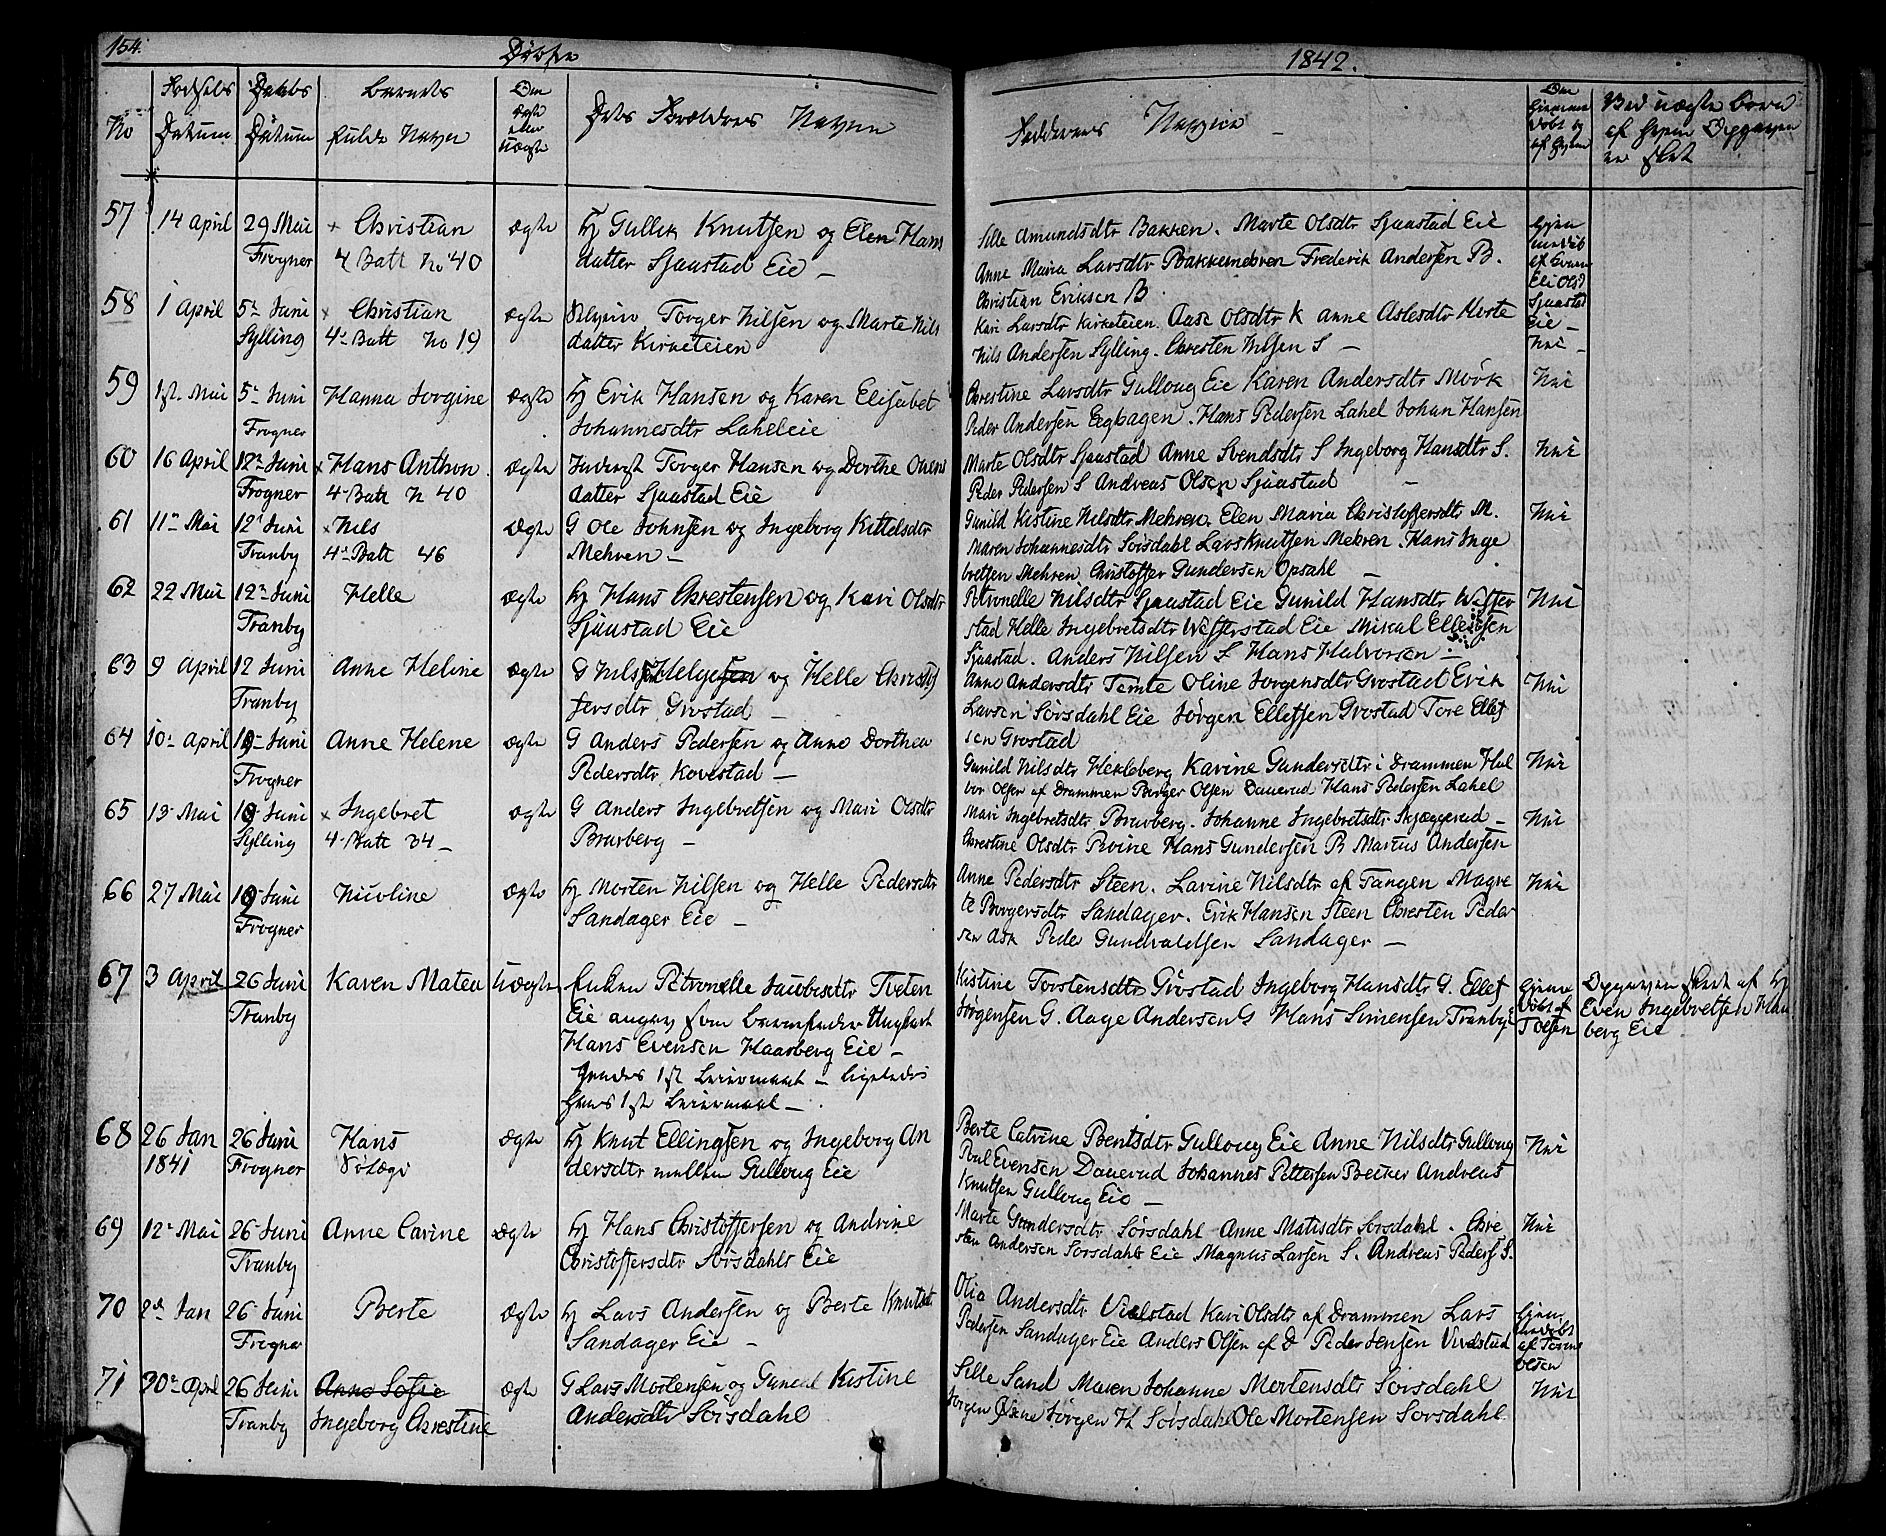 154.
Døbte
1842.
No
Fødsels Datum
Daabs Datum
Barnets fulde Navn
Om ægte eller uægte
Dets Forældres Navne
Fadderens Navne
Om Hiemme døbt og af hvem
Ved uægte børn af hvem Opgaven er skeet
57 14 April 29 Mai + Christian ægte Hj Gullik Knutsen og Elen Hans
Frogner 4 Batt No 40 datter Sjaastad Eie —
Sille Amundsdtr Bakken. Marte Olsdtr Sjaastad Eie
Anne Maria Larsdtr Bakkemoren Frederik Andersen B.
Christian Eriksen B.
Olsd
Sjaastad
Eie —
58 1 April 5te Juni x Christian ægte Torger Nilsen og Marte Nils
Sylling 4de Batt No 19 datter Kirketeien
Kari Larsdtr Kirketeien. Aase Olsdtr K Anne Aslesdtr Horte
Nils Andersen Sylling. Chresten Nilsen S —
Nei —
59 1ste Mai 5te Juni Hanna Jorgine ægte Hj Erik Hansen og Karen Elisabet
Frogner Johannesdtr Laheleie
Chrestine Larsdtr Gulloug Eie Karen Andersdtr Mørk
Peder Andersen Eeghagen. Hans Pedersen Lahel Johan Hansen
Nei
60 16 April 12te Juni x Hans Anthon. ægte Inderst Torger Hansen og Dorthe Ouens
Frogner 4 Batt N 40 datter Sjaastad Eie
Marte Olsdtr Sjaastad Anne Svendsdtr S Ingeborg Hansdtr S.
Peder Pedersen S Andreas Olsen Sjaastad —
Nei
61 11te Mai 12te Juni x Nils ægte G Ole Johnsen og Ingeborg Kittelsdtr
Tranby 4de Batt 46 Mehren —
Gunild Kistine Nilsdtr Mehren. Elen Maria Christoffersdtr M.
Maren Johannesdtr Sørsdahl Lars Knutsen Mehren. Hans Inge
bretsen Mehren Christoffer Gundersen Opsahl —
Nei
62 22 Mai 12te Juni Helle ægte Hj Hans Chrestensen og Kari Olsdtr
Tranby Sjaastad Eie
Petronelle Nilsdtr Sjaastad Eie Gunild Hansdtr Weffer
stad Helle Ingebretsdtr Wefferstad Eie Mikal Ellefsen
Sjaastad. Anders Nilsen S Hans Halvorsen —
Nei
63 9 April 12 Juni Anne Helene ægte G Nils Helgesen og Helle Christof
Tranby fersdtr Grostad —
Anne Andersdtr Temte Oline Jorgensdtr Grostad Erik
Larsen Sørsdahl Eie Jørgen Ellefsen Grostad Tore Ellef
sen Grostad
Nei
64 10de April 19 Juni Anne Helene ægte G Anders Pedersen og Anne Dorthea
Frogner Pedersdtr Kovestad —
Gunild Nilsdtr Hekleberg Karine Gundersdtr i Drammen Hal
vor Olsen af Drammen Børger Olsen Dauerud Hans Pedersen Lahel
Nei
65 13 Mai 19 Juni x Ingebret ægte G Anders Ingebretsen og Mari Olsdtr
Sylling 4 Batt 34 — Brarberg —
Mari Ingebretsdtr Brarberg. Johanne Ingebretsdtr Skjæggerud —
Chrestine Olsdtr Hans Gundersen B Marcus Andersen
Nei
66 27 Mai 19 Juni Nicoline ægte Hj Morten Nilsen og Helle Pedersdtr
Frogner Sandager Eie —
Anne Pedersdtr Steen. Lavine Nilsdtr af Tangen Magre
te Borgersdtr Sandager. Erik Hansen Steen Chresten Peder
sen Ask Peder Gundvaldsen Sandager —
Nei
67 3 April 26 Juni Karen Matea Uægte Enken Petronelle Jacobsdtr Tveten
Tranby Eie angav som barnefader Ungkarl
Hans Evensen Haarberg Eie —
hendes 1ste Leiermaal — ligeledes
hans 1ste Leiermaal —
Kistine Torstensdtr Grostad Ingeborg Hansdtr G. Ellef
Jørgensen G. Aage Andersen G Hans Simensen Tranby
Hjemme Døbt af T Olsen
Opgaven skeet af Hj
Even Ingebretsen Haar
berg Eie
68 26 Jan 26 Juni Hans ægte Hj Knut Ellingsen og Ingeborg An
1841 Frogner dersdtr mellem Gulloug Eie
Berte Catrine Bentsdtr Gulloug Eie Anne Nilsdtr Gulloug
Poul Evensen Dauerud Johannes Pettersen Becker Andreas
Knutsen Gulloug Eie —
Nei
69 12te Mai 26 Juni Anne Carine ægte Hj Hans Christoffersen og Andrine
Tranby Christoffersdtr Sørsdahls Eie
Marte Gundersdtr Sørsdahl Anne Matisdtr Sørsdahl. Chre
sten Andersen Sørsdahls Eie Magnus Larsen S. Andreas Peders S.
Nei
70 2den Jan 26 Juni Berte ægte Hj Lars Andersen og Berte Knutsdtr
Frogner Sandager Eie —
Olia Andersdtr Vivelstad Kari Olsdtr af Drammen Lars
Pedersen Sandager Eie Anders Olsen af D Peder Jensen Vivelstad
Hjem
medøbt
af Torine
Olsen
71 30te April 26 Juni Anne Sofie ægte G Lars Mortensen og Kistine
Tranby Ingeborg Chrestine Andersdtr Sørsdahl
Sille Sand Maren Johanne Mortensdtr Sørsdahl
Jørgen Jørgen H Sørsdahl Ole Mortensen Sørsdahl
Nei